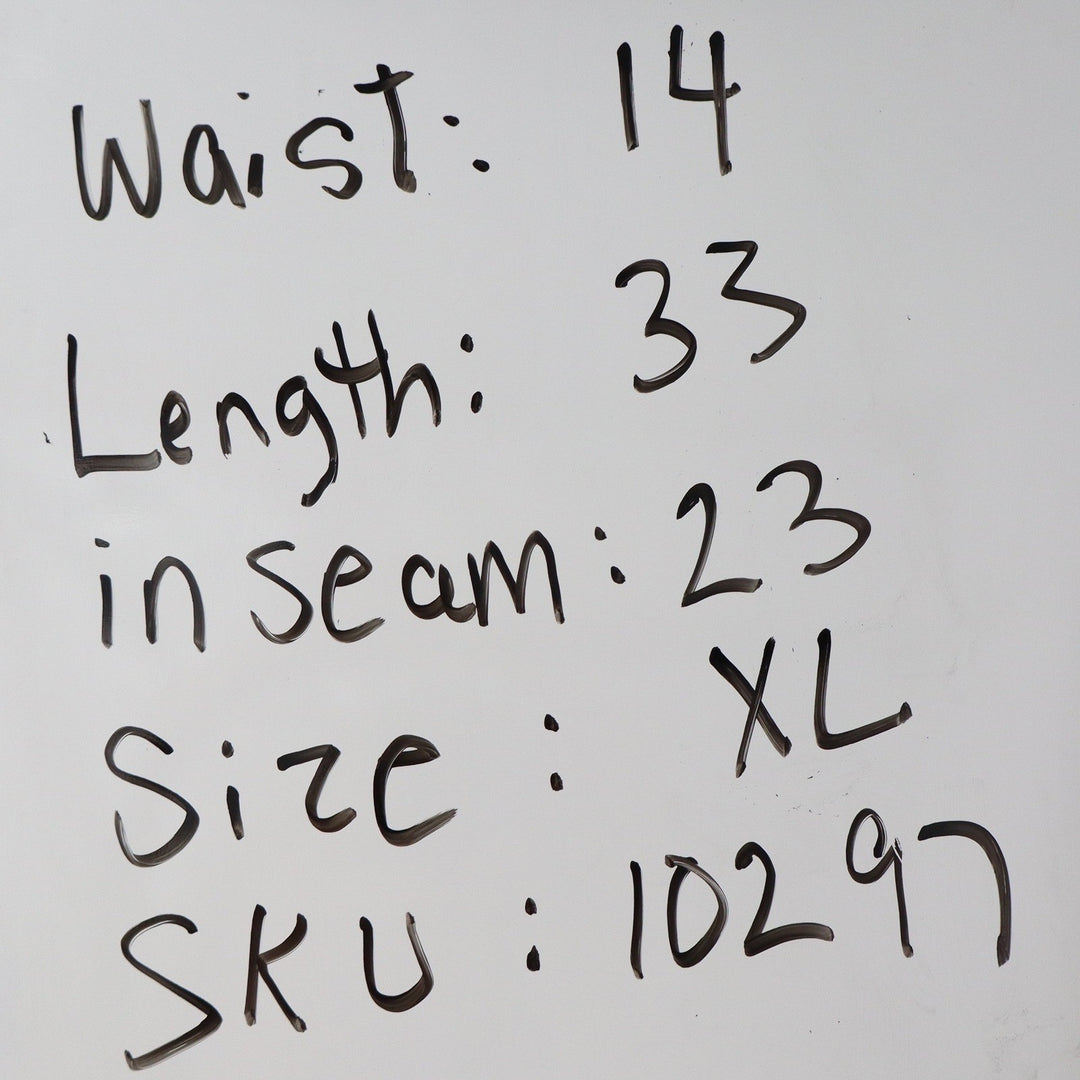 Waist: 14
Length: 33
inseam: 23
Size: XL
SKU: 10297